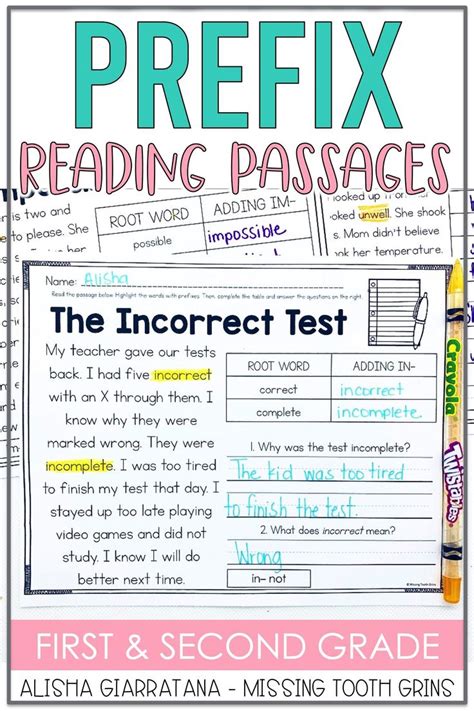 PREFIX
READING PASSAGES
is two and
to please. She
ROOT WORD
ADDING IM-
possible
impossible
looked up
ooked unwell. She shook
s. Mom didn't believe
ook her temperature.
Name: Alisha
Read the passage below. Highlight the words with prefixes. Then, complete the table and answer the questions on the right.
The Incorrect Test
My teacher gave our tests
back. I had five incorrect
with an X through them. I
know why they were
marked wrong. They were
incomplete. I was too tired
to finish my test that day. I
stayed up too late playing
video games and did not
study. I know I will do
better next time.
ROOT WORD
ADDING IN-
correct
incorrect
complete
incomplete
1. Why was the test incomplete?
The kid was too tired
to finish the test.
2. What does incorrect mean?
Wrong
in- not
© Missing Tooth Grins
Crayola
Twistables
FIRST & SECOND GRADE
ALISHA GIARRATANA - MISSING TOOTH GRINS